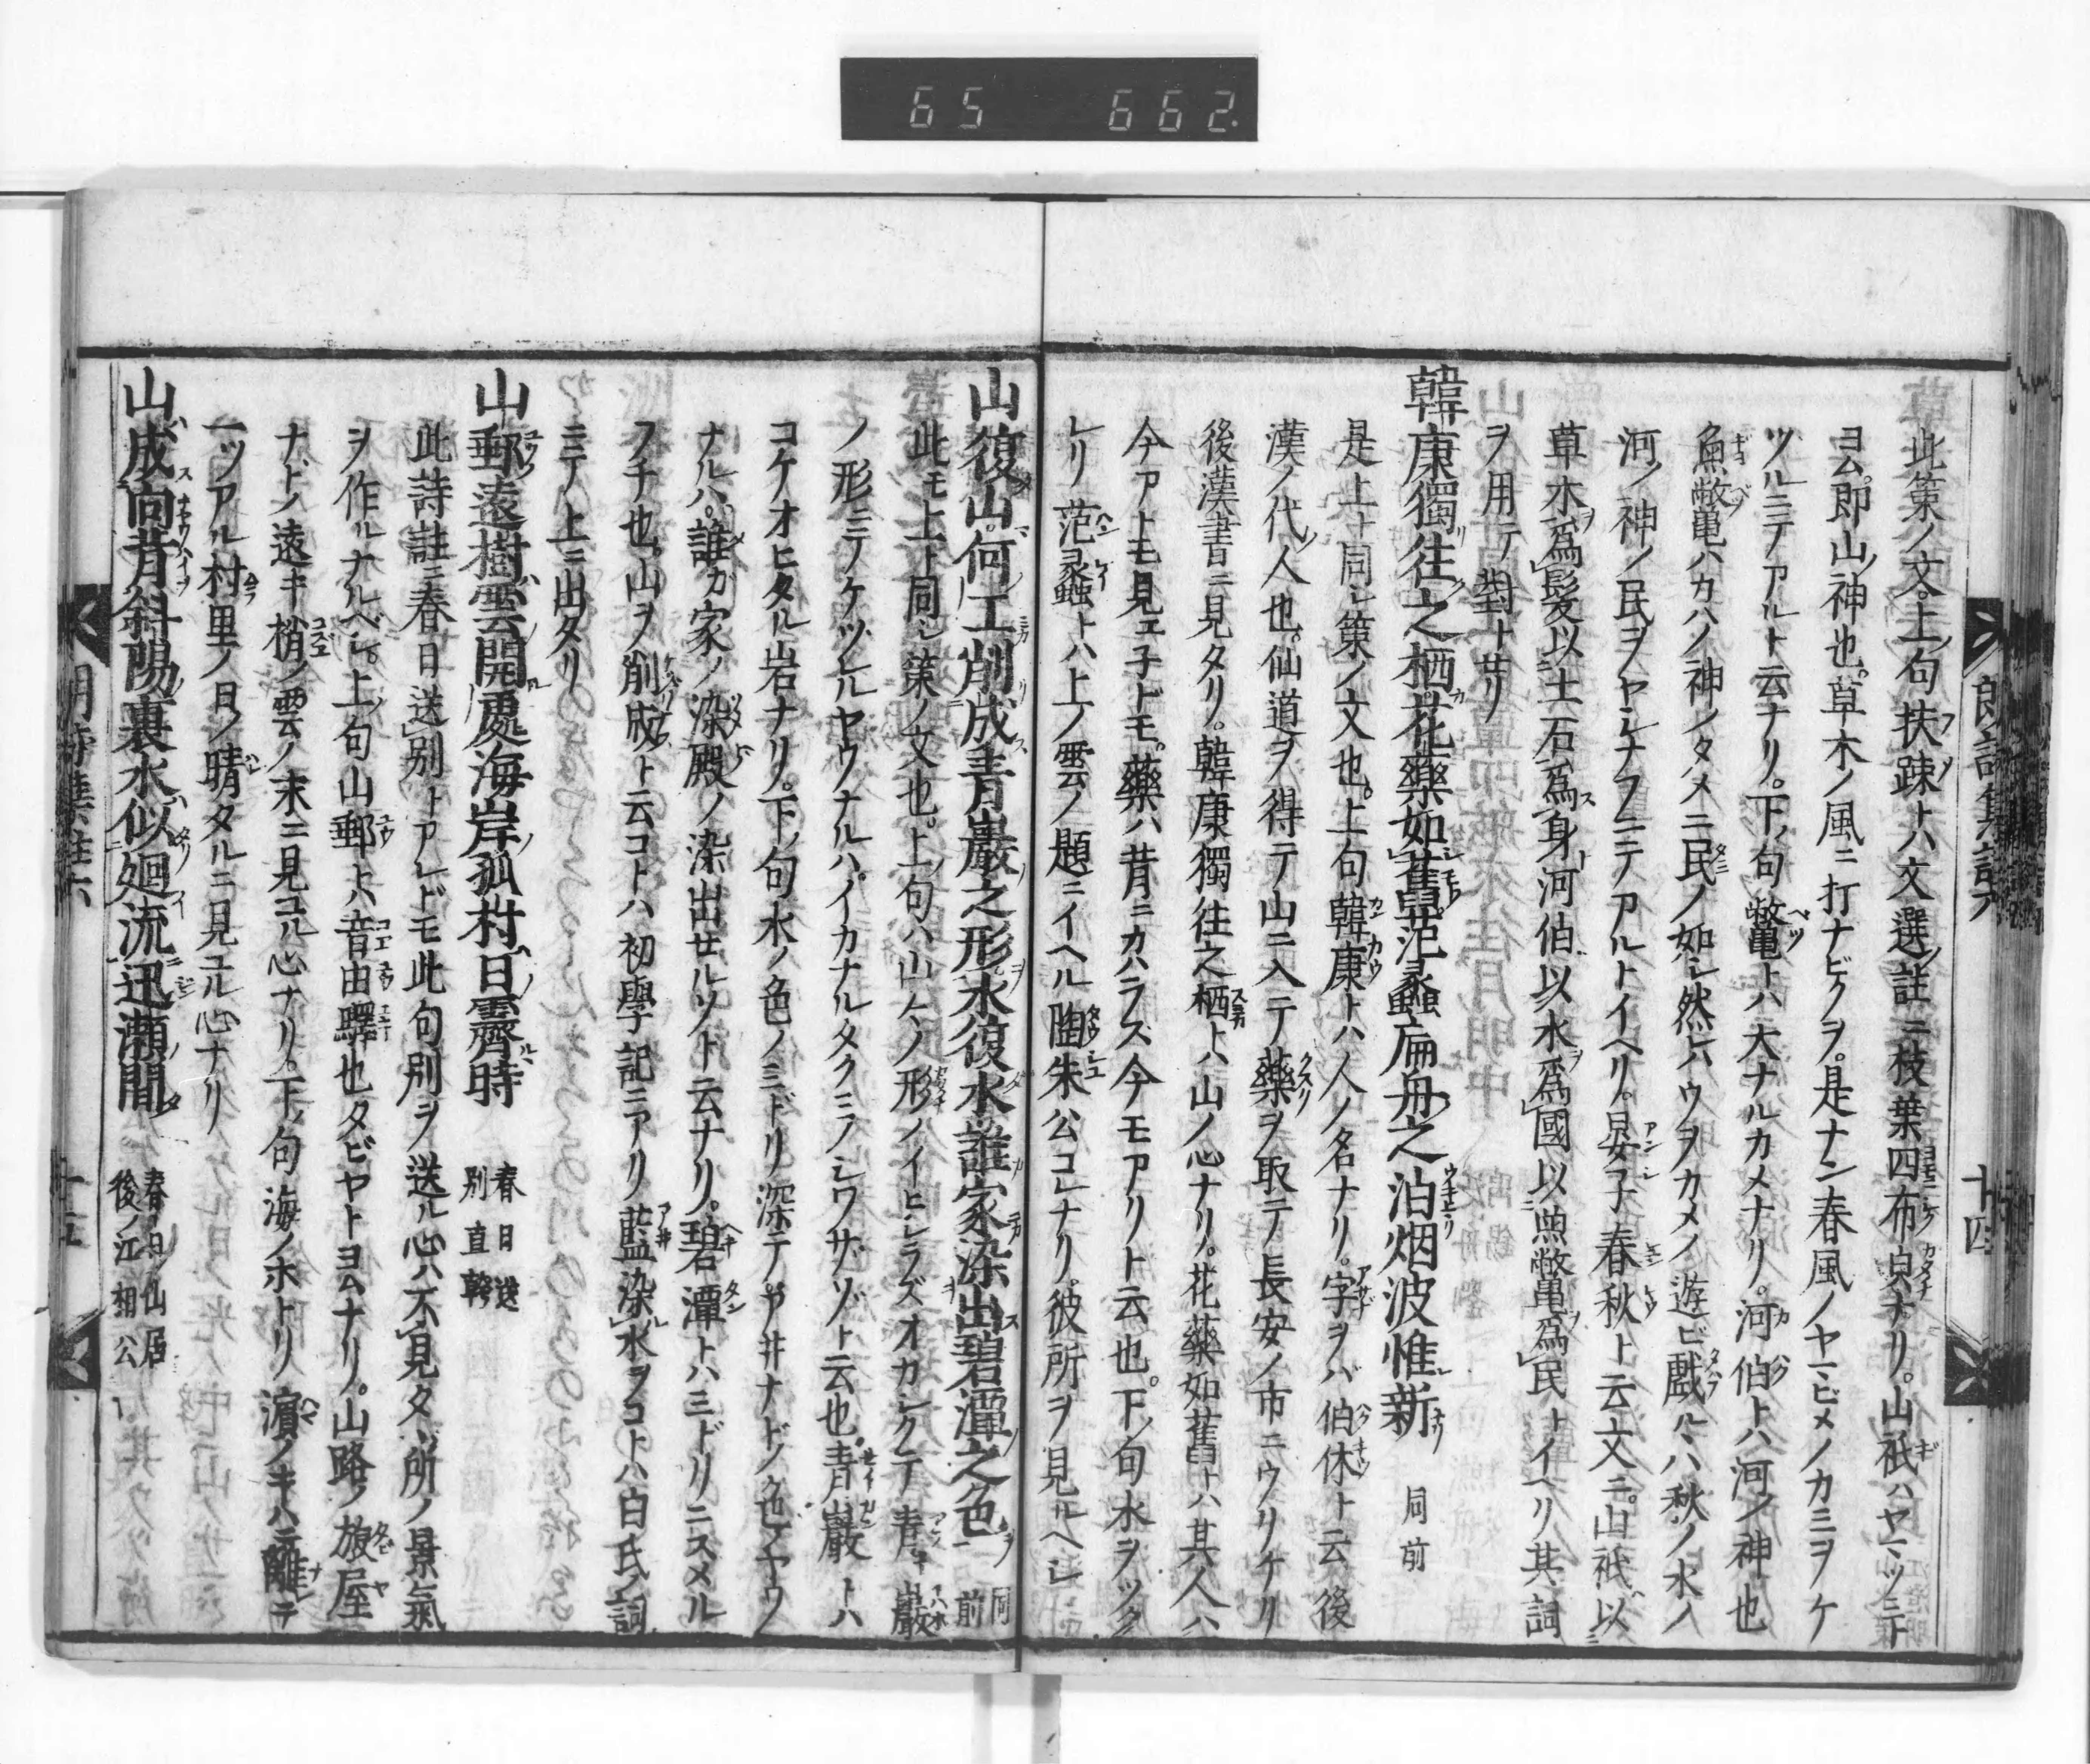 65 662.
此策ノ文。上ノ句扶踈トハ文選ノ註ニ枝葉四布皃ナリ。山祇ハヤマツミト
ヨム。即山ノ神也。草木ノ風ニ打ナビクヲ。是ナン春風ノヤマビメノカミヲケ
ツルニテアルト云ナリ。下ノ句鼈トハ大ナルカメナリ。河伯トハ河ノ神也
魚鼈ハカハノ神ノタメニ民ノ如シ然バウヲカメノ遊ビ戯ルヽハ秋ノ水ノ
河ノ神ノ民ヲヤシナフニテアルトイヘリ。晏子春秋ト云文ニ。山祇ハ以
草木爲髮以土石爲身河伯以水爲國以魚鼈爲民トイヘリ其詞
ヲ用テ對トせリ
韓康獨往之栖花藥如舊范蠡扁舟之泊烟波惟新 同前
是上ト同シ策ノ文也。上句韓康トハ人ノ名ナリ。字ヲバ伯休ト云後
漢ノ代ノ人也。仙道ヲ得テ山ニ入テ藥ヲ取テ長安ノ市ニウリケリ
後漢書ニ見タリ。韓康獨往之栖トハ山ノ心ナリ。花藥如舊トハ其人ハ
今アトモ見ェ子ドモ。藥ハ昔ニカハラズ今モアリト云也。下ノ句水ヲツク
レリ范蠡トハ上ノ雲ノ題ニイヘル陶朱公コレナリ。彼所ヲ見ルヘシ
山復山。何工削成青巖之形。水復水。誰家染出碧潭之色 同前
此モ上ト同シ策ノ文也。上ノ句ハ山々ノ形ノイヒシラズオカシクテ青キ巖
ノ形ミノケヅレルヤウナルハ。イカナルタクミノシワザゾト云也。青巖トハ
コケオヒタル岩ナリ。下ノ句水ノ色ノミドリ深テ。アヰナドノ色ノヤウ
ナルハ。誰ガ家ノ染殿ノ染出せルソト云ナリ。碧潭トハミドリニスメル
フチ也。山ヲ削成ト云コトハ初學記ニアリ藍染水ヲコトハ白氏ノ詞
ニテ上ニ出タリ
山郵遠樹雲開處海岸孤村日霽時 春日送別 直幹
此詩註ニ春日送別トアレドモ此句別ヲ送ル心ハ不見タヾ所ノ景氣
ヲ作ルナルベシ。上ノ句山郵トハ音由驛也タビヤトヨムナリ。山路ノ旅屋
ナドノ遠キ梢ノ雲ノ末ニ見コル心ナリ。下ノ句海ノホトリノ濵ノキハニ離テ
一ツアル村里ノ日ノ晴タルニ見ユル心ナリ
山成向背斜陽裏水似廻流迅瀬間 春ノ日ノ仙居 後ノ江相公
十四